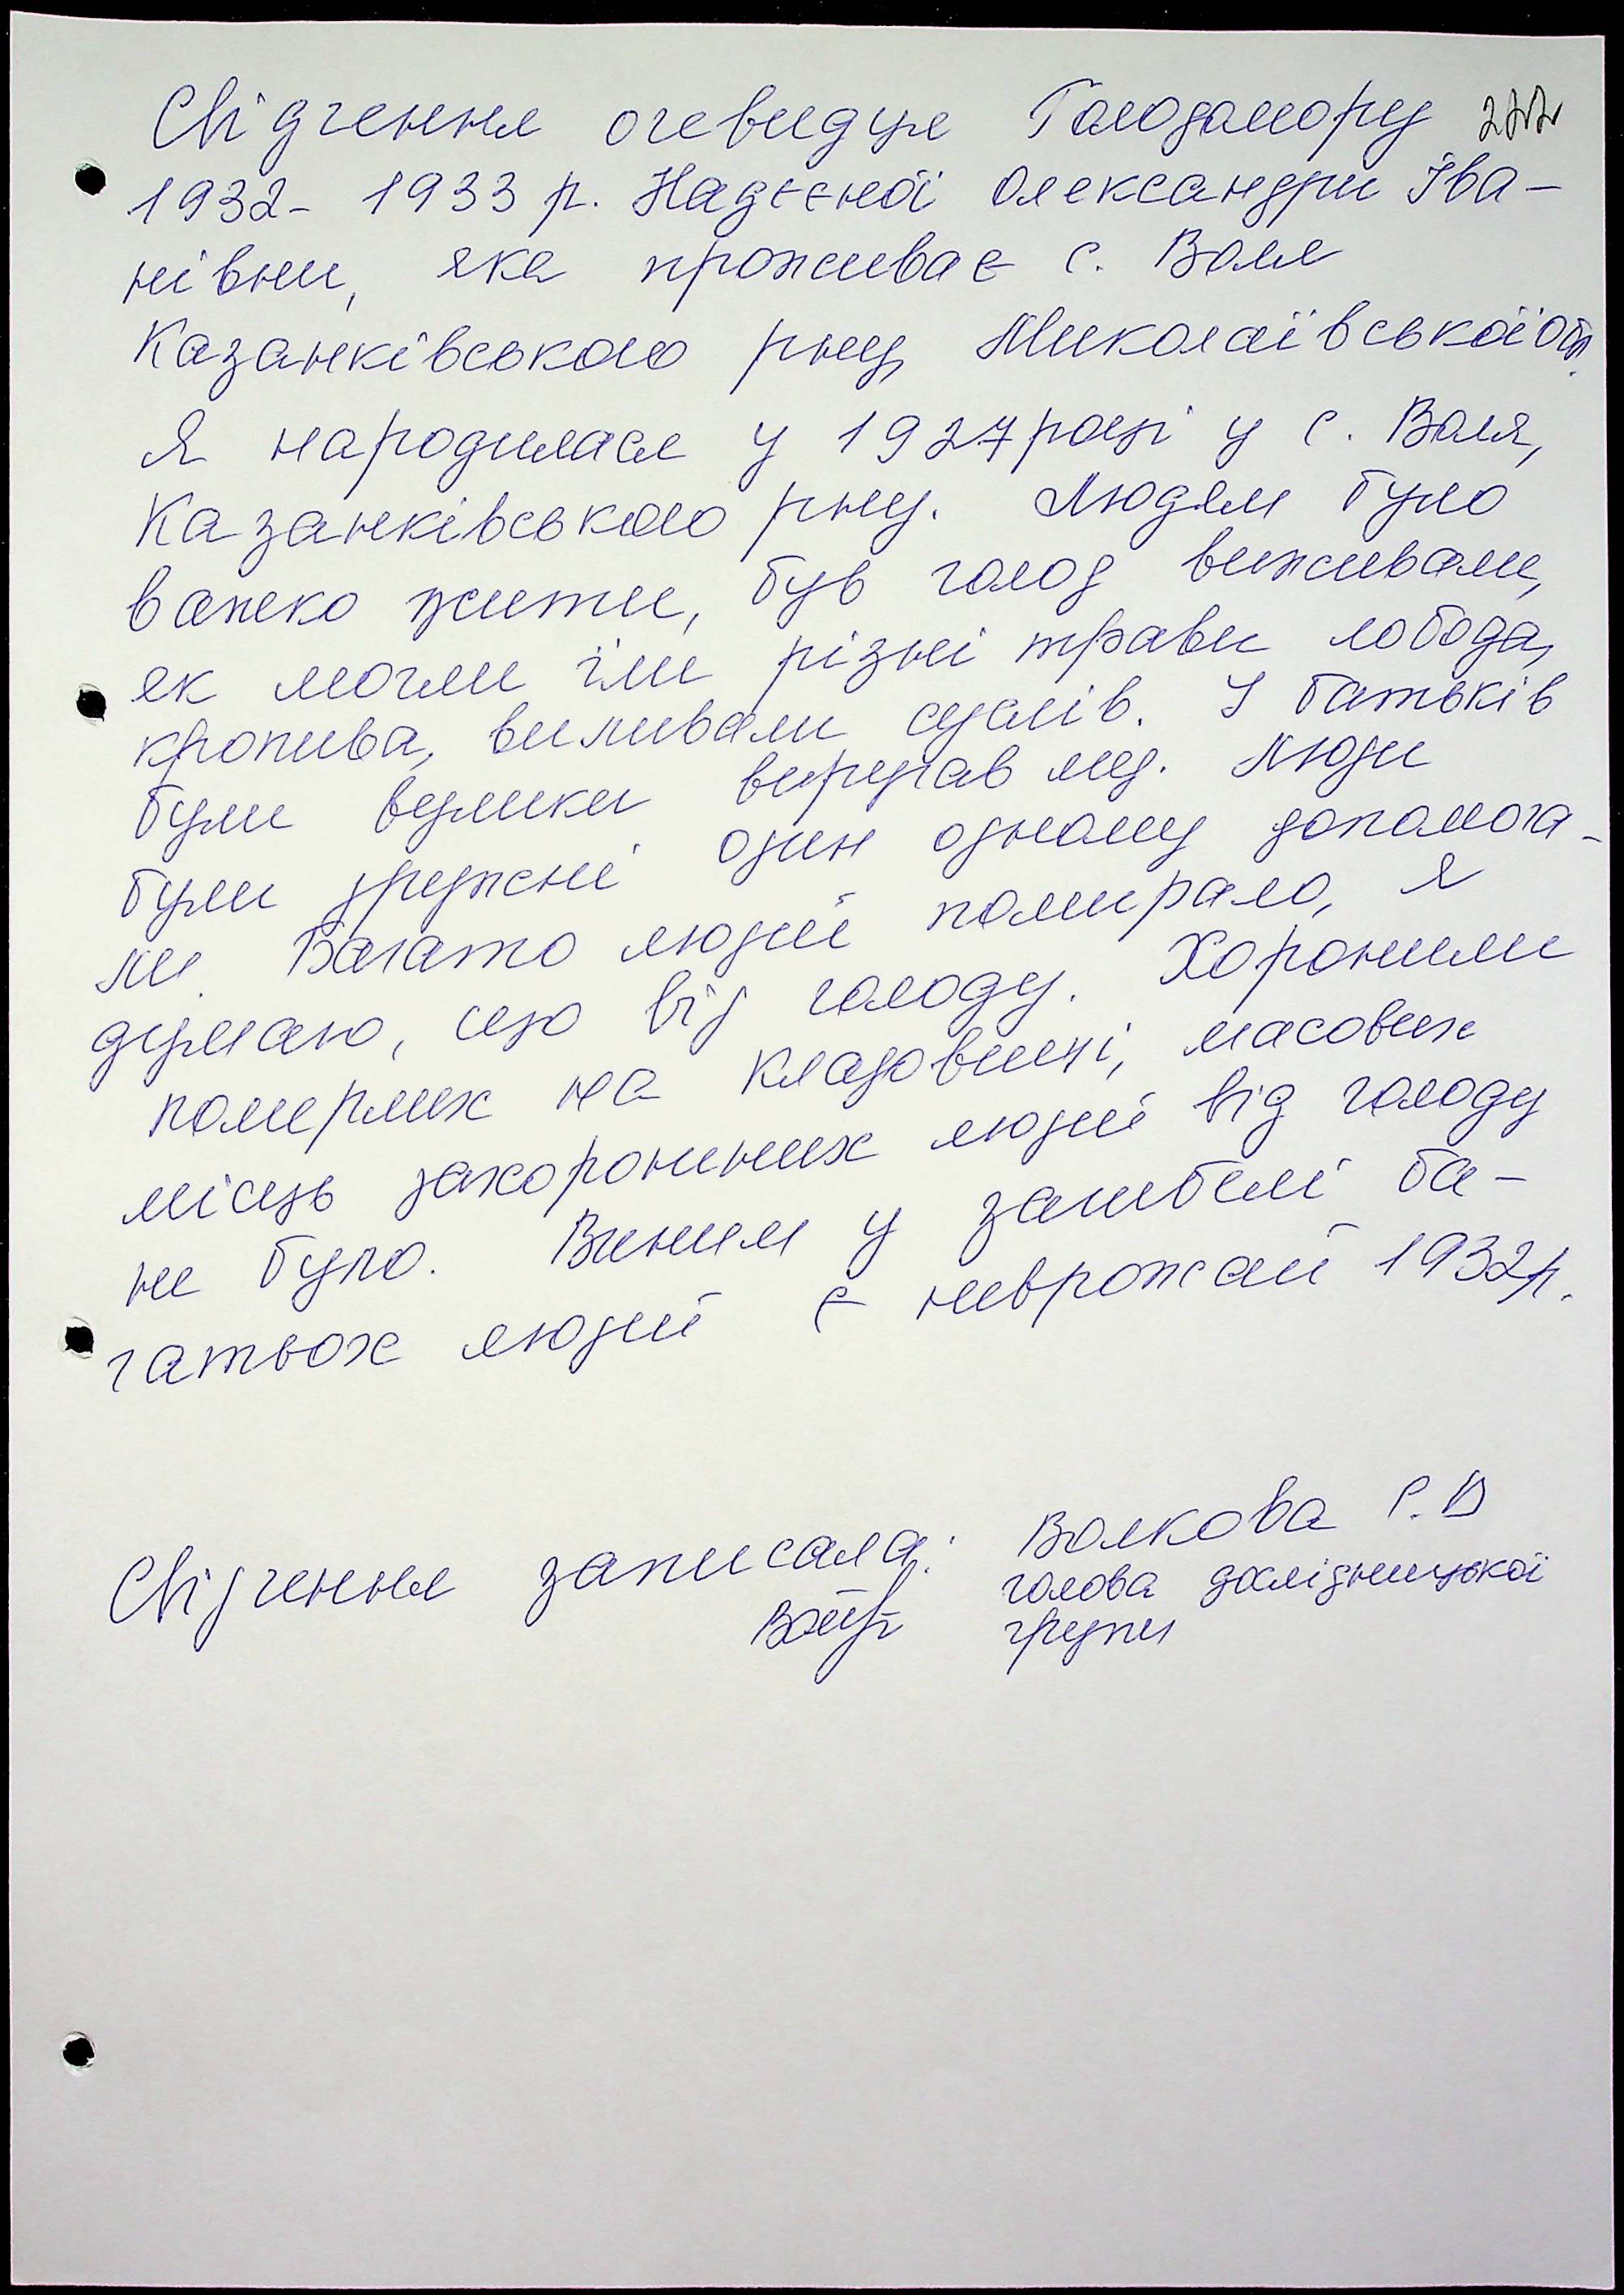 Свідчення очевидця Голодомору
1932- 1933 р. Надєєної Олександри Іва-
нівни, яка проживає с. Воля
Казанківського рну, Миколаївської обл.
Я народилася у 1927 році у с. Воля,
Казанківського рну. Людям було
важко жити, був голод виживали,
як могли їли різні трави лобода,
кропива, виливали суслів. У батьків
були вулики виручав мед. Люди
були дружні один одному допомога-
ли. Багато людей помирало, я
думаю, що від голоду. Хоронили
померлих на кладовищі, масових
місць захоронених людей від голоду
не було. Виним у загибелі ба-
гатьох людей є неврожай 1932р.
Свідчення записала: Волкова С. В
голова дослідницької
групи